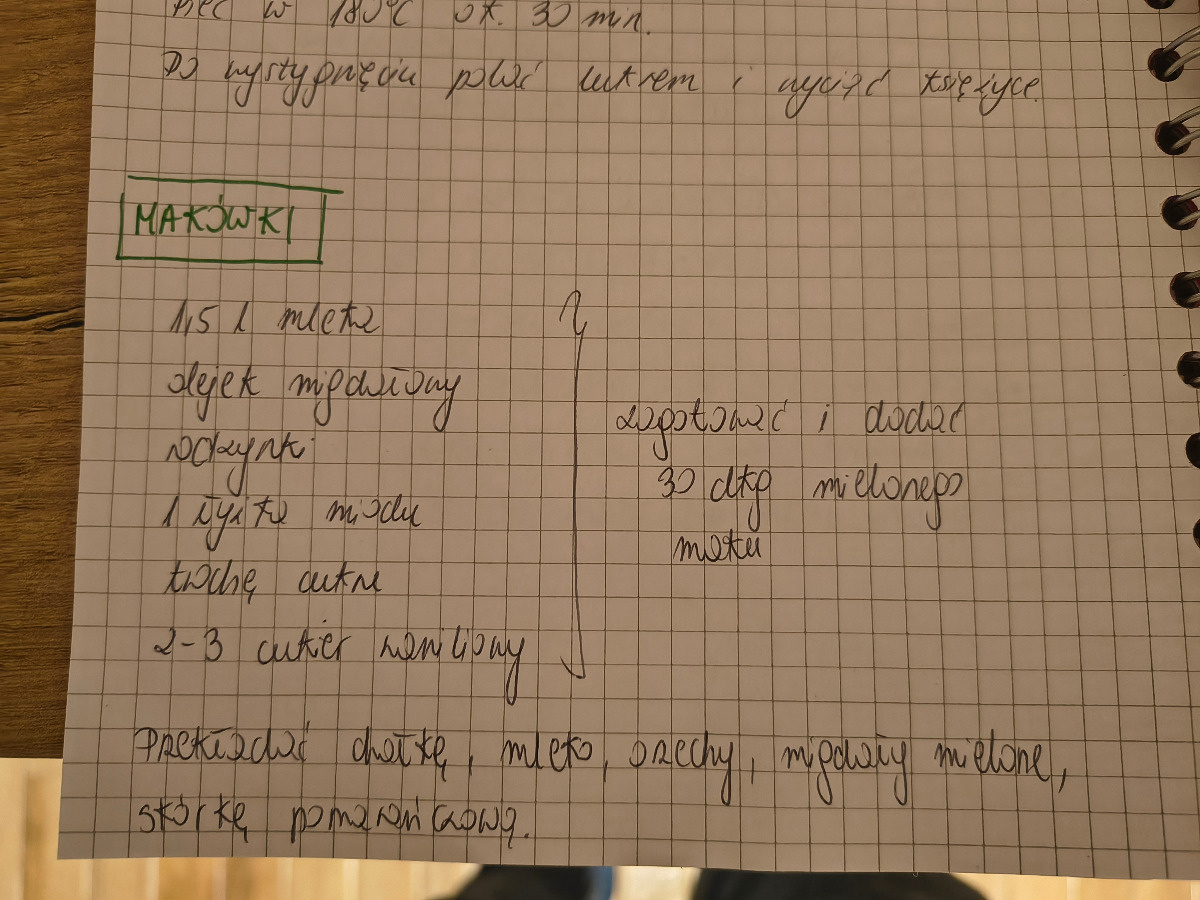 Piec w 180°C ok. 30 min.
Po wystygnięciu polać lukrem i wyciąć księżyce.
MAKÓWKI
1,5 l mleka
olejek migdałowy
rodzynki
1 łyżka miodu
trochę cukru
2-3 cukier waniliowy
zagotować i dodać
30 dkg mielonego
maku
Przekładać chałkę, mleko, orzechy, migdały mielone,
skórkę pomarańczową.